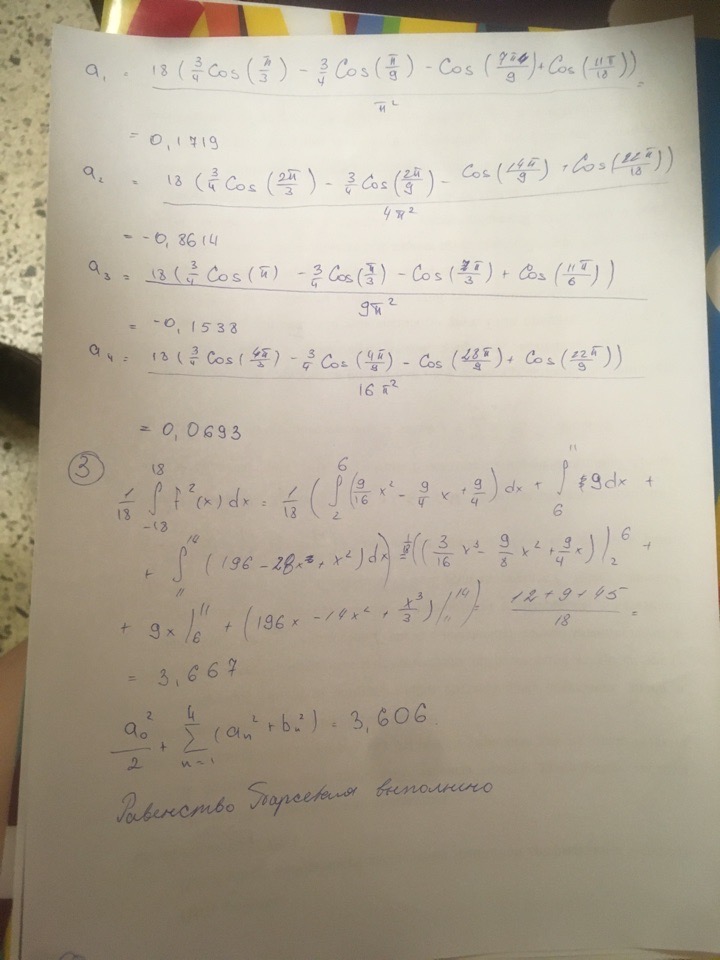 a₁ = 18 (3/4 Cos (π/3) − 3/4 Cos (π/9) − Cos (7π/9) + Cos (11π/18)) / π² =
= 0,1719
a₂ = 18 (3/4 Cos (2π/3) − 3/4 Cos (2π/9) − Cos (14π/9) + Cos (22π/18)) / 4π²
= -0,8614
a₃ = 18 (3/4 Cos (π) − 3/4 Cos (π/3) − Cos (7π/3) + Cos (11π/6)) / 9π²
= -0,1538
a₄ = 18 (3/4 Cos (4π/3) − 3/4 Cos (4π/9) − Cos (28π/9) + Cos (22π/9)) / 16π²
= 0,0693
③
1/18 ∫₋₁₈¹⁸ f²(x) dx = 1/18 (∫₂⁶ (9/16 x² − 9/4 x + 9/4) dx + ∫₆¹¹ 9dx +
+ ∫₁₁¹⁴ (196 − 28x + x²) dx) = 1/18 ((3/16 x³ − 9/8 x² + 9/4 x) |₂⁶ +
+ 9x |₆¹¹ + (196x − 14x² + x³/3) |₁₁¹⁴) = 12 + 9 + 45 / 18 =
= 3,667
a₀²/2 + ∑ₙ₌₁⁴ (aₙ² + bₙ²) = 3,606.
Равенство Парсеваля выполнино